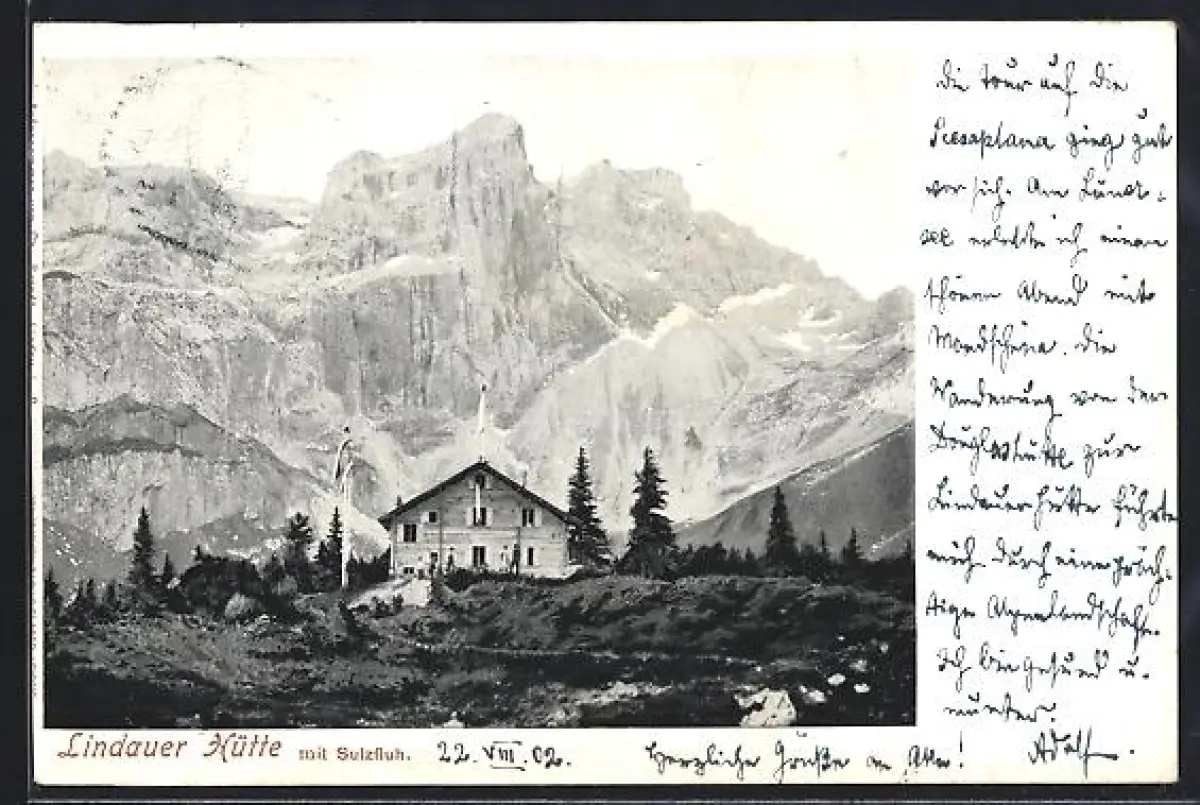 Die Tour auf die
Scesaplana ging gut
vor sich. Am Lüner-
see erlebte ich einen
schönen Abend mit
Mondschein. Die
Wanderung von der
Douglashütte zur
Lindauerhütte führte
mich durch eine präch-
tige Alpenlandschaft.
Ich bin gesund u.
munter.
Adolf.
Lindauer Hütte mit Sulzfluh.
22. VIII. 02.
Herzliche Grüße an Alle!